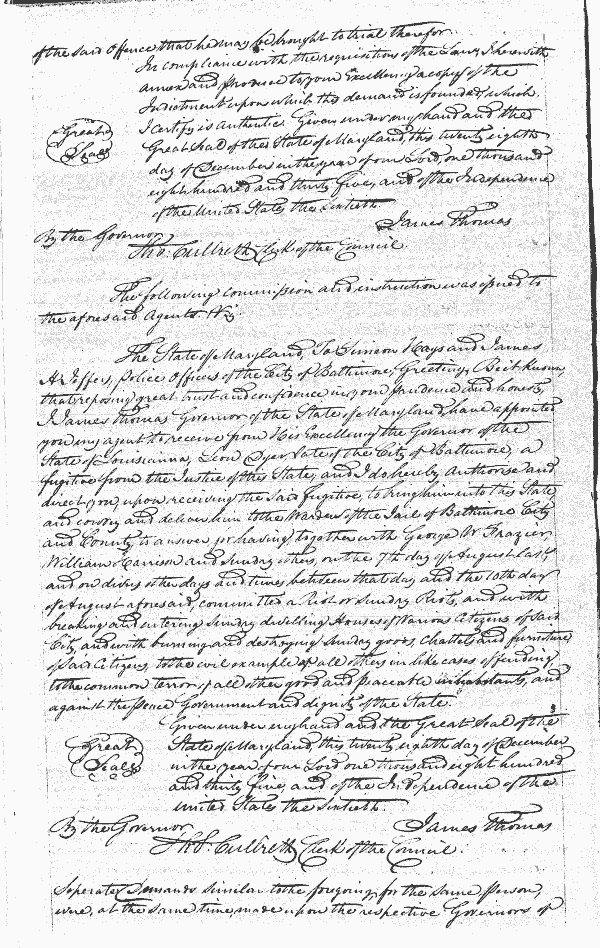 of the said Offence that he may be brought to trial therefor.
In compliance with the requisitions of the Law, I herewith
annex and produce to your Excellency a copy of the
Indictment upon which this demand is founded, which
I certify is authentic. Given under my hand and the
Great
Seal
Great Seal of the State of Maryland, this twenty eighth
day of December in the year of our Lord, one thousand
eight hundred and thirty five, and of the Independence
of the United States the Sixtieth.
James Thomas
By the Governor,
Tho. Culbreth Clerk of the Council.
The following commission and instruction was issued to
the aforesaid Agents. Viz,
The State of Maryland, To Simeon Hays and James
H. Jeffers, Police Officers of the City of Baltimore, Greeting, Be it Known,
that reposing great trust and confidence in your prudence and honesty,
I James Thomas Governor of the State of Maryland, have appointed
you my agent to receive from His Excellency the Governor of the
State of Louisianna, Leon Dyer late of the City of Baltimore, a
fugitive from the Justice of this State, and I do hereby Authorise and
direct you, upon receiving the said fugitive, to bring him into this State
and convey and deliver him to the Warden of the Jail of Baltimore City
and County to answer for having, together with George W. Frazier,
William Harrison and Sundry others, on the 7th day of August last
and on divers other days and times between that day and the 10th day
of August aforesaid, committed a Riot or Sundry Riots, and with
breaking and entering Sundry dwelling Houses of Various Citizens of Said
City, and with burning and destroying Sundry goods, chattels and furniture
of Said Citizens, to the evil example of all others in like cases offending
to the common terror of all other good and peaceable inhabitants, and
against the peace Government and dignity of the State.
Given under my hand and the Great Seal of the
Great
Seal
State of Maryland, this twenty eighth day of December
in the year of our Lord one thousand eight hundred
and thirty five, and of the Independence of the
United States the Sixtieth.
By the Governor, James Thomas
Tho. Culbreth Clerk of the Council.
Seperate Demands similar to the foregoing, for the same person,
were, at the same time, made upon the respective Governors of